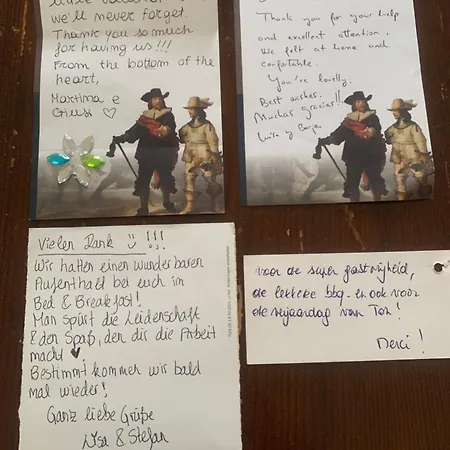 we'll never forget.
Thank you so much
for having us!!!
From the bottom of the
heart,
Martina e
♡
Thank you for your help
and excellent attention.
We felt at home and
confortable.
You're lovelly.
Best wishes.
Muchas gracias!!
y
Vielen Dank !!!
Wir hatten einen wunderbaren
Aufenthalt bei euch im
Bed & Breakfast!
Man spürt die Leidenschaft
& den Spaß, den dir die Arbeit
macht ♥.
Bestimmt kommen wir bald
mal wieder!
Ganz liebe Grüße
Lisa & Stefan
voor de super gastvrijheid,
de lekkere bbq en ook voor
de verjaardag van Ton!
Merci!